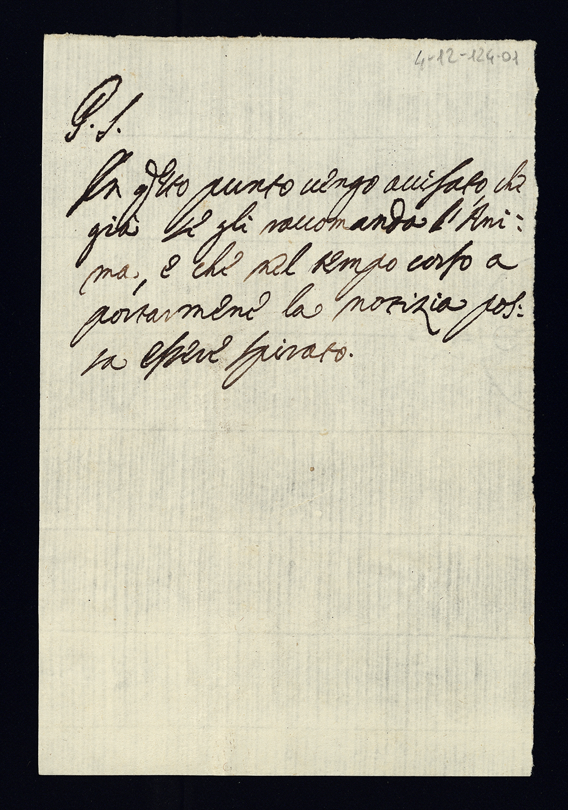 4-12-124-01
P. S.
In q.sto punto vengo avisato che
già se gli raccomanda l'Ani:
ma, e che nel tempo corso a
portarmene la notizia pos:
sa essere spirato.